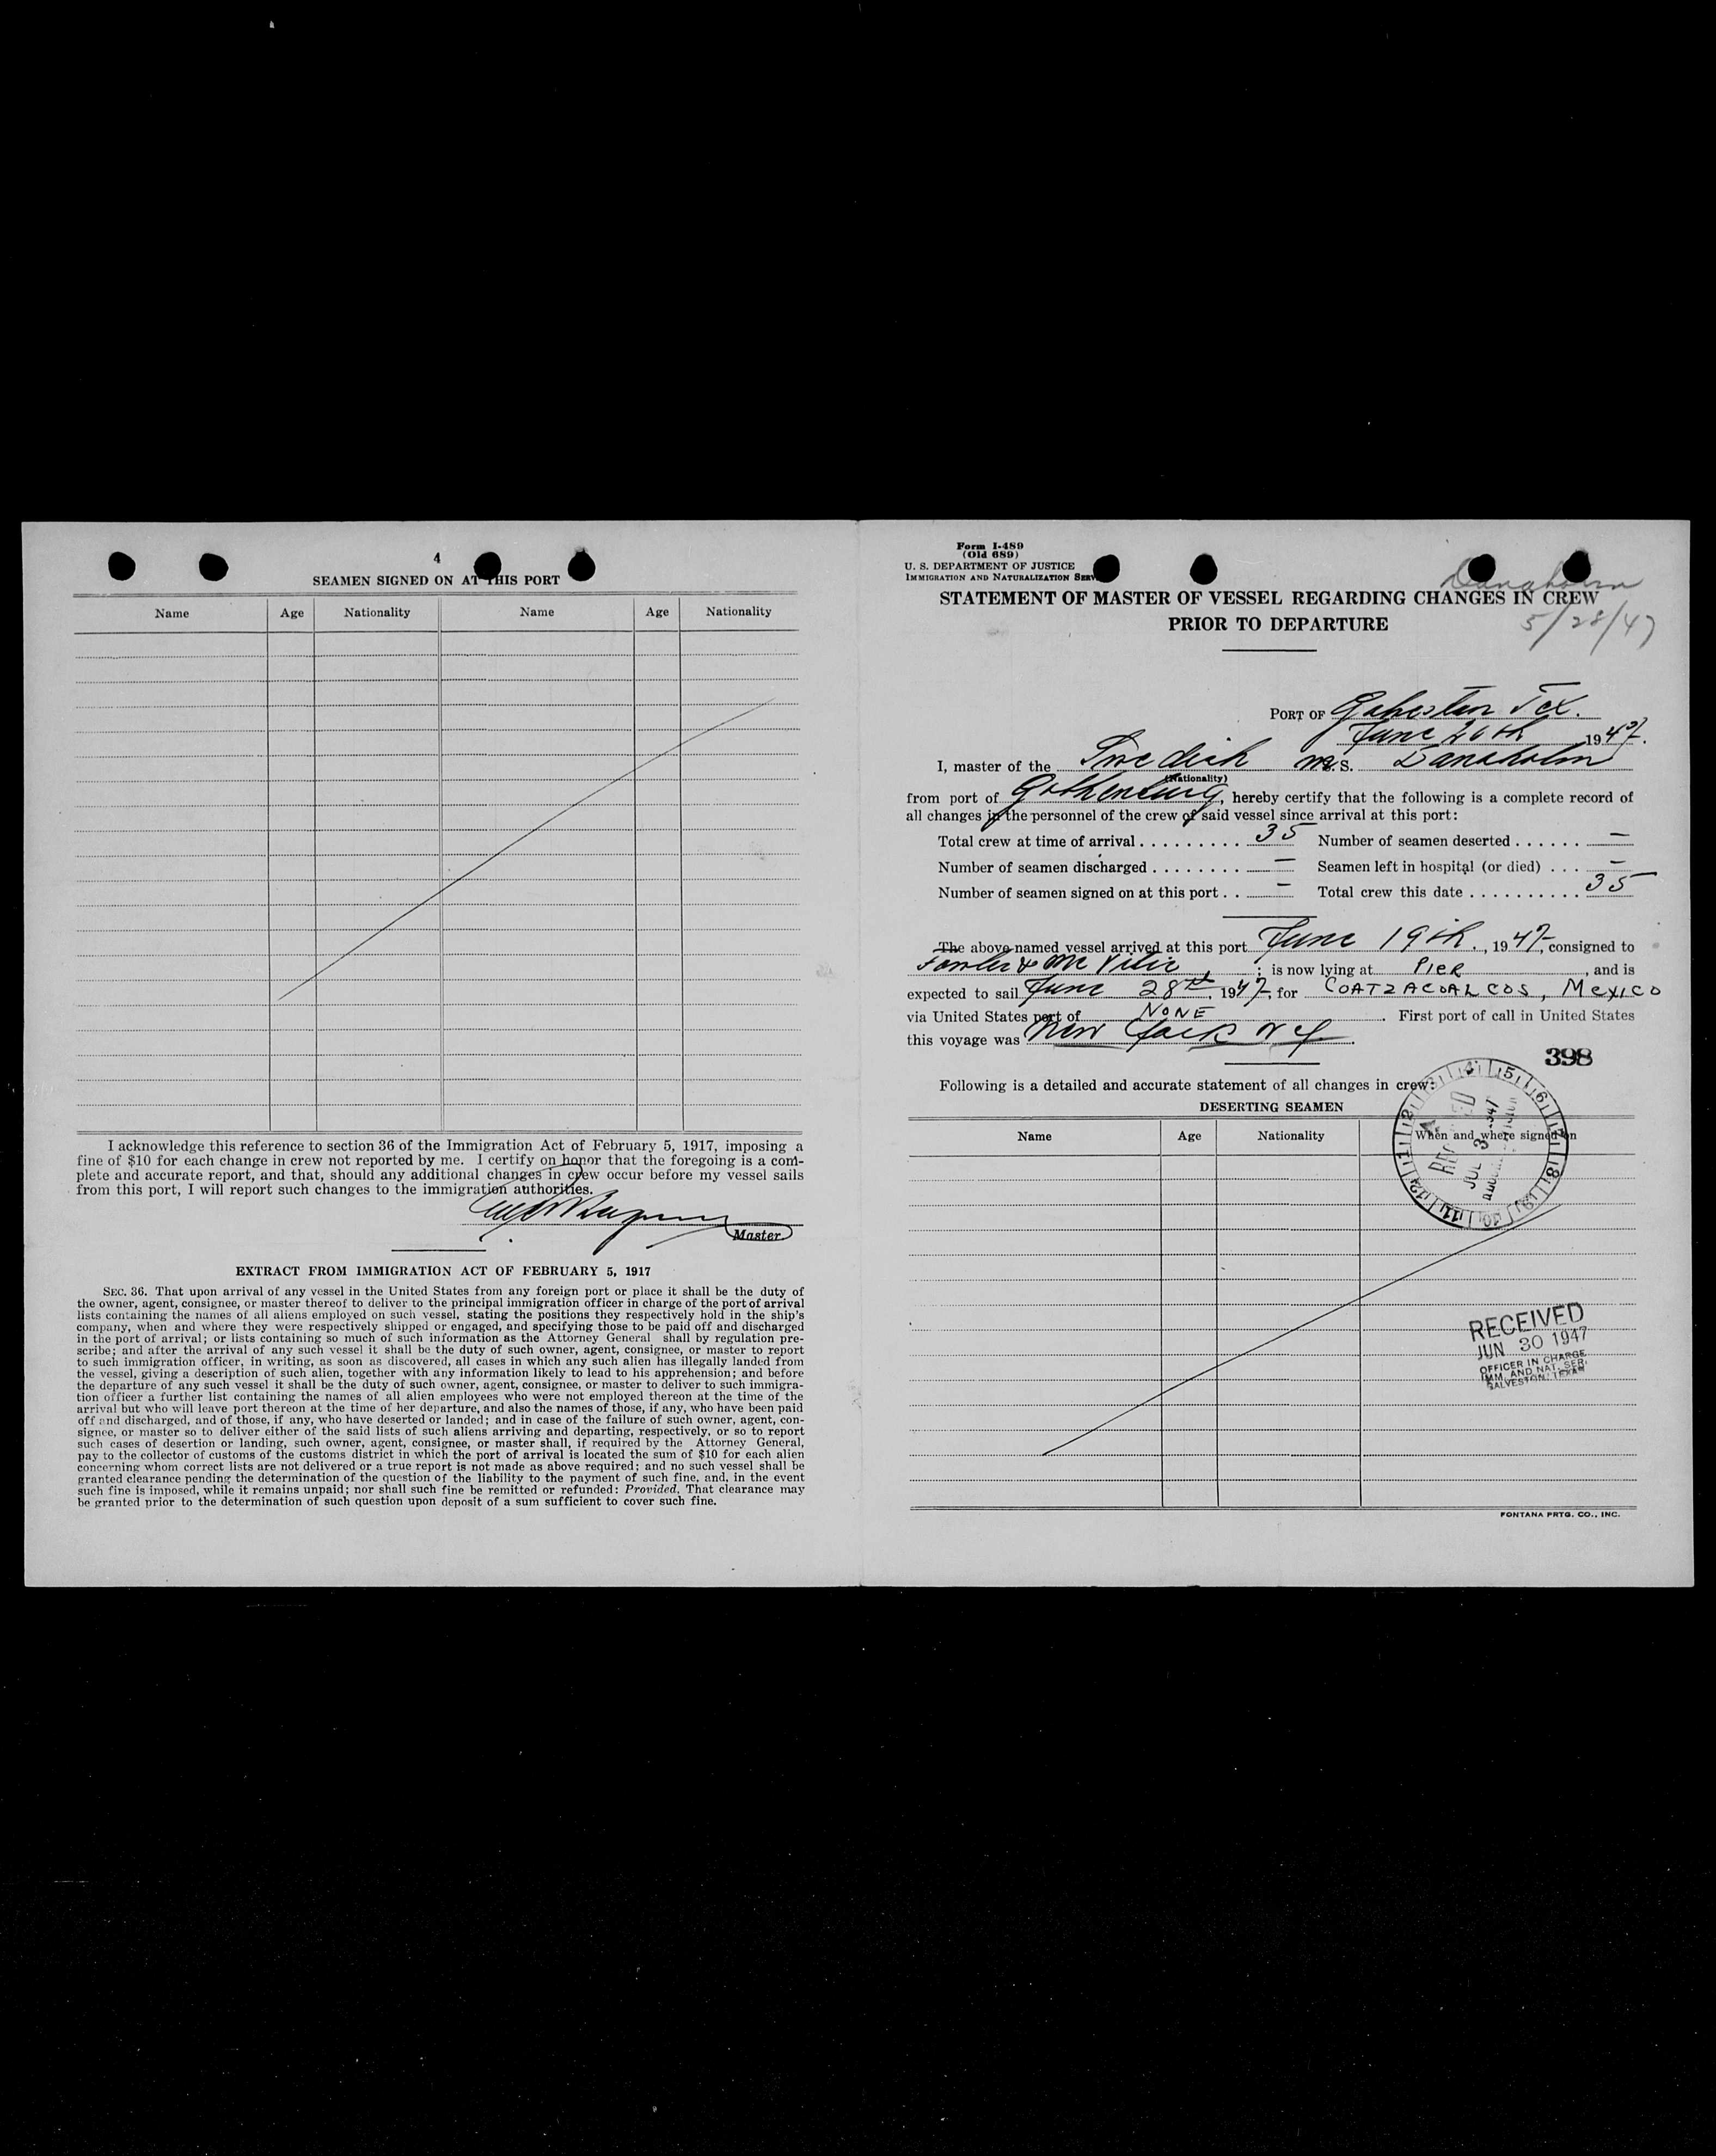 4
SEAMEN SIGNED ON AT THIS PORT
Name Age Nationality Name Age Nationality
I acknowledge this reference to section 36 of the Immigration Act of February 5, 1917, imposing a
fine of $10 for each change in crew not reported by me. I certify on honor that the foregoing is a com-
plete and accurate report, and that, should any additional changes in crew occur before my vessel sails
from this port, I will report such changes to the immigration authorities.
Master
EXTRACT FROM IMMIGRATION ACT OF FEBRUARY 5, 1917
SEC. 36. That upon arrival of any vessel in the United States from any foreign port or place it shall be the duty of
the owner, agent, consignee, or master thereof to deliver to the principal immigration officer in charge of the port of arrival
lists containing the names of all aliens employed on such vessel, stating the positions they respectively hold in the ship's
company, when and where they were respectively shipped or engaged, and specifying those to be paid off and discharged
in the port of arrival; or lists containing so much of such information as the Attorney General shall by regulation pre-
scribe; and after the arrival of any such vessel it shall be the duty of such owner, agent, consignee, or master to report
to such immigration officer, in writing, as soon as discovered, all cases in which any such alien has illegally landed from
the vessel, giving a description of such alien, together with any information likely to lead to his apprehension; and before
the departure of any such vessel it shall be the duty of such owner, agent, consignee, or master to deliver to such immigra-
tion officer a further list containing the names of all alien employees who were not employed thereon at the time of the
arrival but who will leave port thereon at the time of her departure, and also the names of those, if any, who have been paid
off and discharged, and of those, if any, who have deserted or landed; and in case of the failure of such owner, agent, con-
signee, or master so to deliver either of the said lists of such aliens arriving and departing, respectively, or so to report
such cases of desertion or landing, such owner, agent, consignee, or master shall, if required by the Attorney General,
pay to the collector of customs of the customs district in which the port of arrival is located the sum of $10 for each alien
concerning whom correct lists are not delivered or a true report is not made as above required; and no such vessel shall be
granted clearance pending the determination of the question of the liability to the payment of such fine, and, in the event
such fine is imposed, while it remains unpaid; nor shall such fine be remitted or refunded: Provided, That clearance may
be granted prior to the determination of such question upon deposit of a sum sufficient to cover such fine.
Form I-489
(Old 689)
U. S. DEPARTMENT OF JUSTICE
IMMIGRATION AND NATURALIZATION SERV
Danaholm
STATEMENT OF MASTER OF VESSEL REGARDING CHANGES IN CREW
PRIOR TO DEPARTURE
5/28/47
PORT OF Galveston Tex.
June 26th 1947.
I, master of the Swedish M.S. Danaholm
(Nationality)
from port of Gothenburg, hereby certify that the following is a complete record of
all changes in the personnel of the crew of said vessel since arrival at this port:
Total crew at time of arrival . . . . . . . . . 35 Number of seamen deserted . . . . . . —
Number of seamen discharged . . . . . . . . — Seamen left in hospital (or died) . . . —
Number of seamen signed on at this port . . — Total crew this date . . . . . . . . . . 35
The above-named vessel arrived at this port June 19th, 1947, consigned to
Fowler & McVitie; is now lying at PIER, and is
expected to sail June 28th, 1947, for COATZACOALCOS, MEXICO
via United States port of NONE. First port of call in United States
this voyage was New York N Y.
398
Following is a detailed and accurate statement of all changes in crew:
DESERTING SEAMEN
Name Age Nationality When and where signed on
RECEIVED
JUN 30 1947
OFFICER IN CHARGE
IMM. AND NAT. SER.
GALVESTON, TEXAS
FONTANA PRTG. CO., INC.